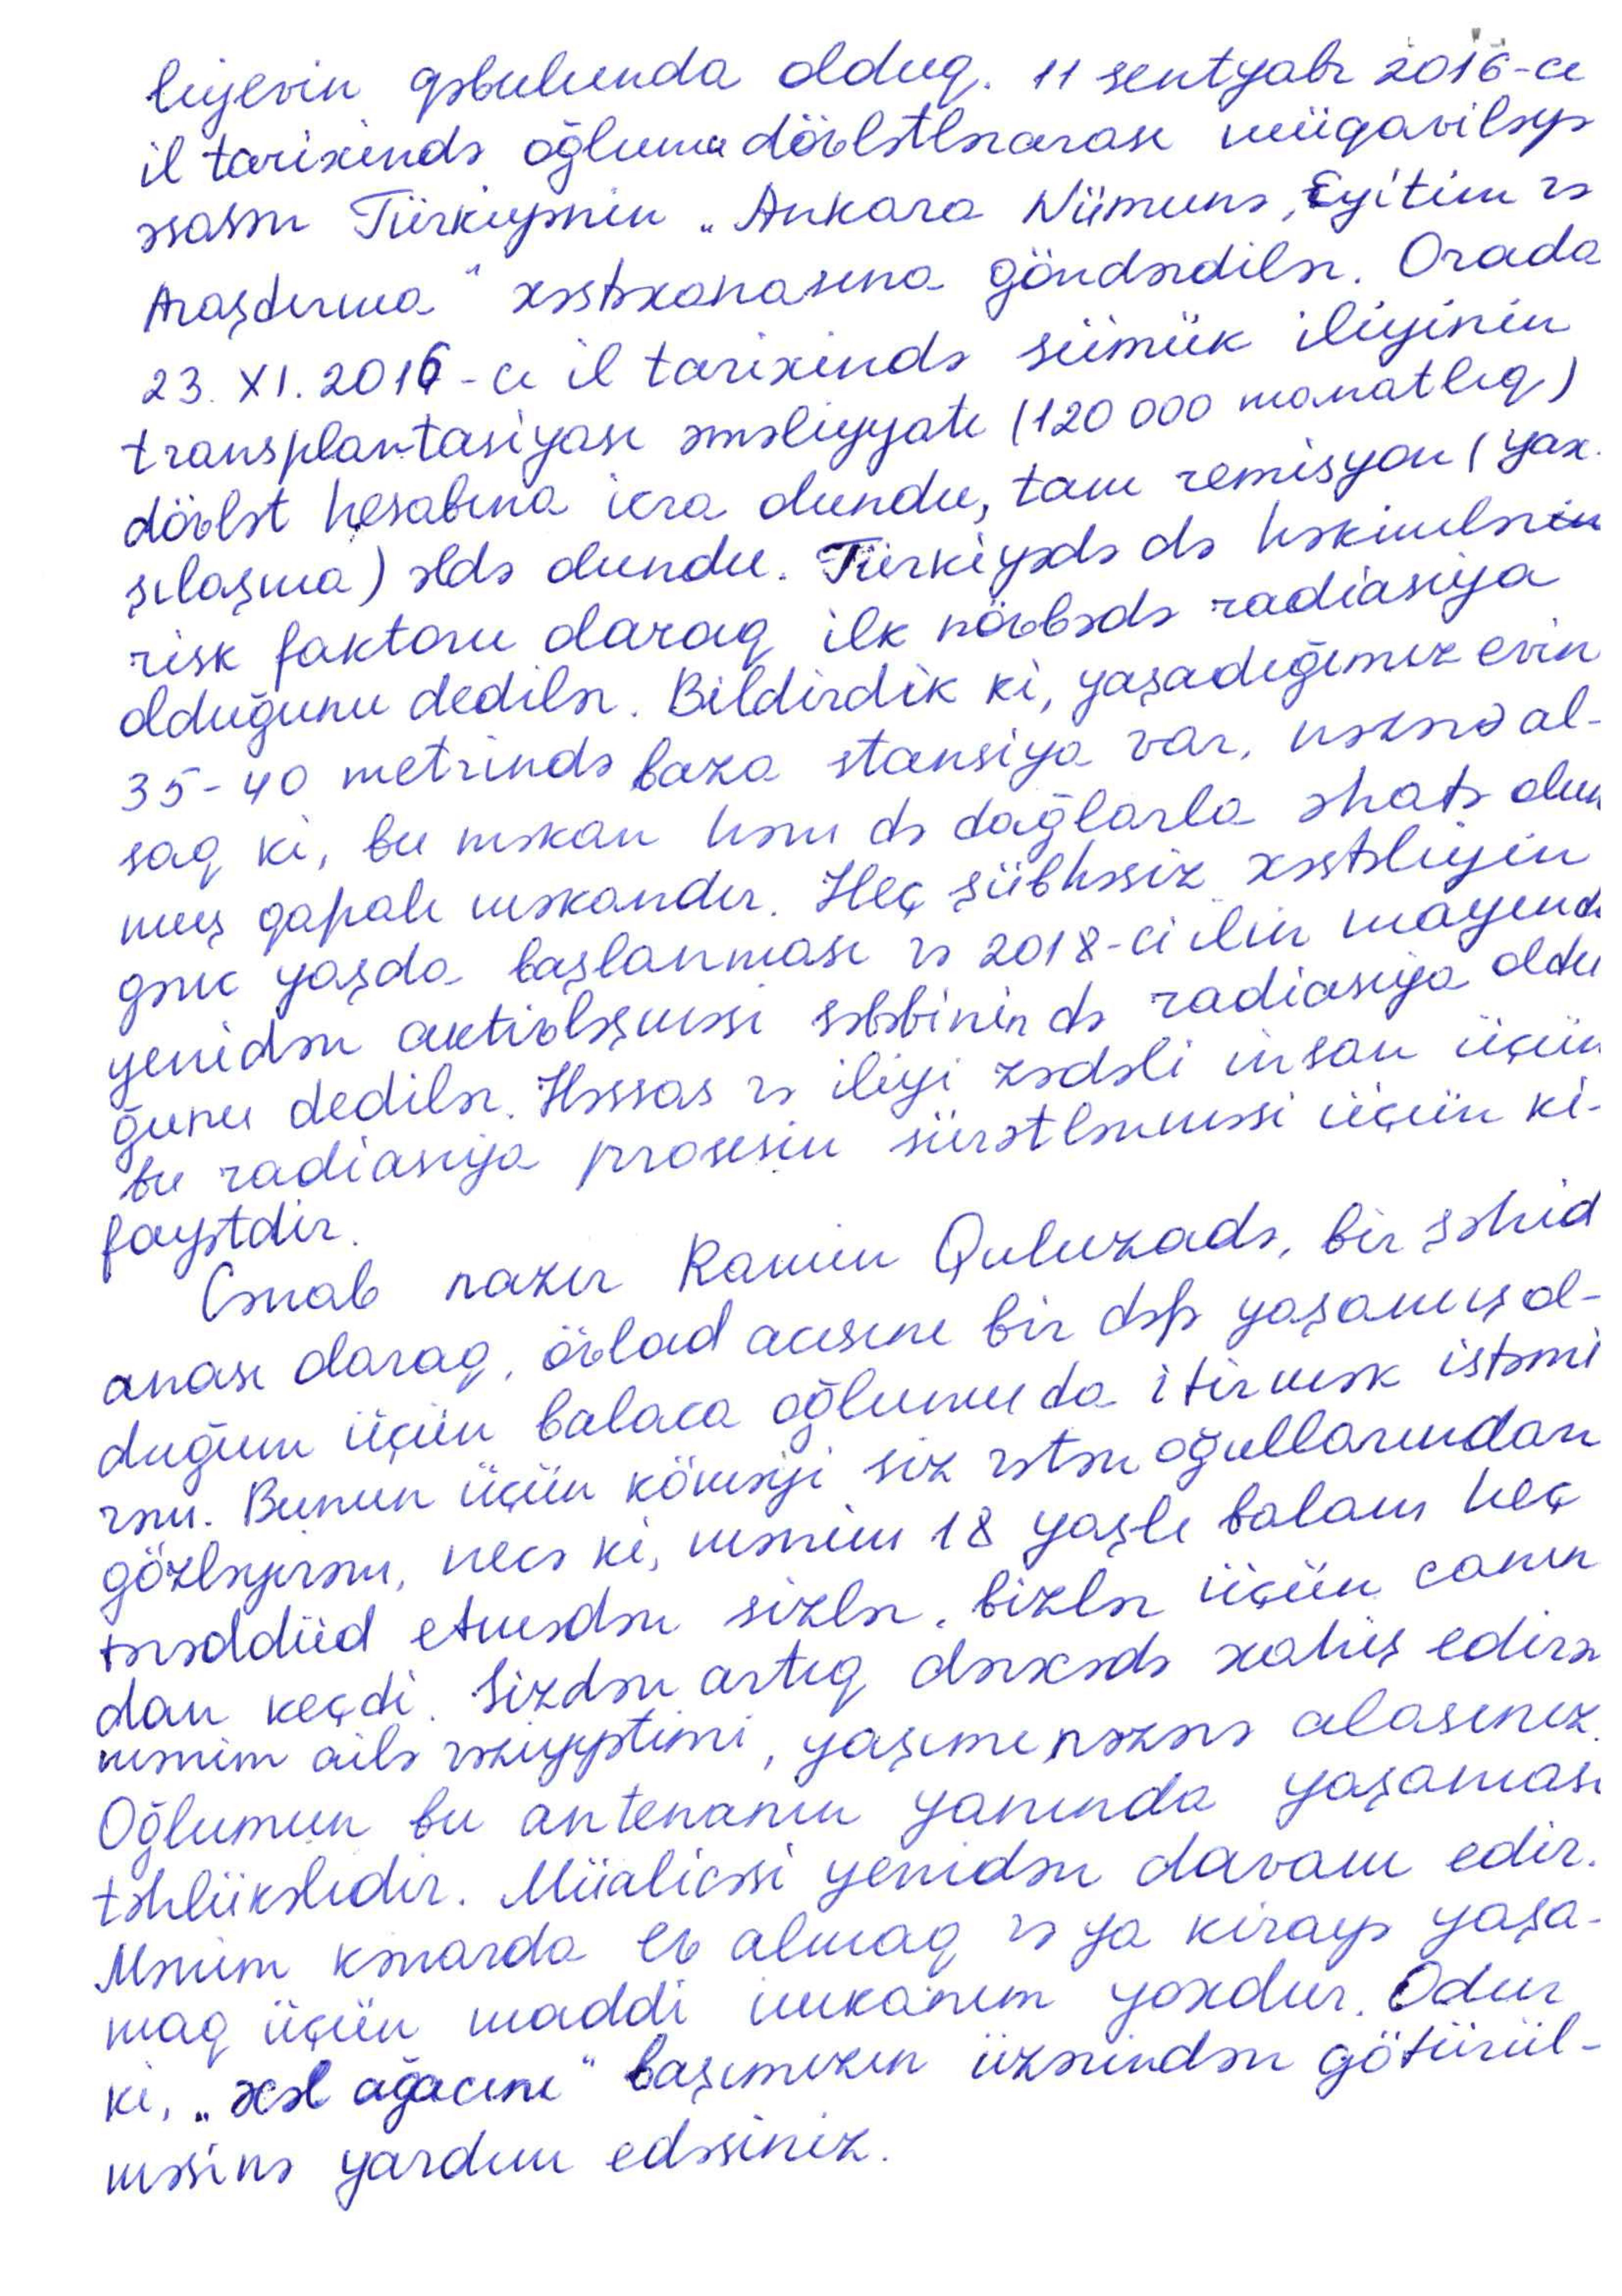 liyevin qəbulunda olduq. 11 sentyabr 2016-cı
il tarixində oğlumu dövlətlərarası müqaviləyə
əsasən Türkiyənin „Ankara Nümunə, Eyitim və
Araşdırma“ xəstəxanasına göndərdilər. Orada
23.XI.2016-cı il tarixində sümük iliyinin
transplantasiyası əməliyyatı (120 000 manatlıq)
dövlət hesabına icra olundu, tam remisyon (yax-
şılaşma) əldə olundu. Türkiyədə də həkimlərin
risk faktoru olaraq ilk növbədə radiasiya
olduğunu dedilər. Bildirdik ki, yaşadığımız evin
35-40 metrində baza stansiya var, nəzərə al-
saq ki, bu məkan həm də dağlarla əhatə olun
muş qapalı məkandır. Heç şübhəsiz xəstəliyin
gənc yaşda başlanması və 2018-ci ilin mayında
yenidən aktivləşməsi səbəbinin də radiasiya oldu
ğunu dedilər. Həssas və iliyi zədəli insan üçün
bu radiasiya prosesin sürətlənməsi üçün ki-
fayətdir.
Cənab nazir Ramin Quluzadə, bir şəhid
anası olaraq, övlad acısını bir dəfə yaşamış ol-
duğum üçün balaca oğlumu da itirmək istəmi
rəm. Bunun üçün köməyi siz vətən oğullarından
gözləyirəm, necə ki, mənim 18 yaşlı balam heç
tərəddüd etmədən sizlər, bizlər üçün canın
dan keçdi. Sizdən artıq dərəcədə xahiş edirə
mənim ailə vəziyyətimi, yaşımı nəzərə alasınız.
Oğlumun bu antenanın yanında yaşaması
təhlükəlidir. Müalicəsi yenidən davam edir.
Mənim kənarda ev almaq və ya kirayə yaşa-
maq üçün maddi imkanım yoxdur. Odur
ki, „əcəl ağacını“ başımızın üzərindən götürül-
məsinə yardım edəsiniz.